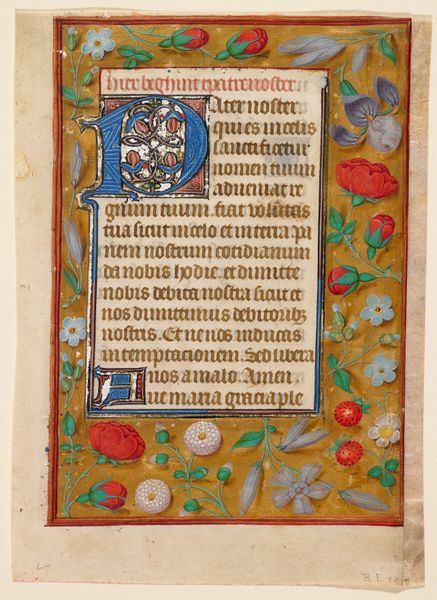 hier beghint t patrenoster
Pater noster
qui es in celis
sanctificetur
nomen tuum
adueniat re
gnum tuum. fiat volūtas
tua sicut in celo et in terra pa
nem nostrum cotidianum
da nobis hodie. et dimitte
nobis debita nostra sicut et
nos dimittimus debitorib;
nostris. Et ne nos inducas
in temptacionem. Sed libera
nos a malo. Amen
Aue maria gracia ple